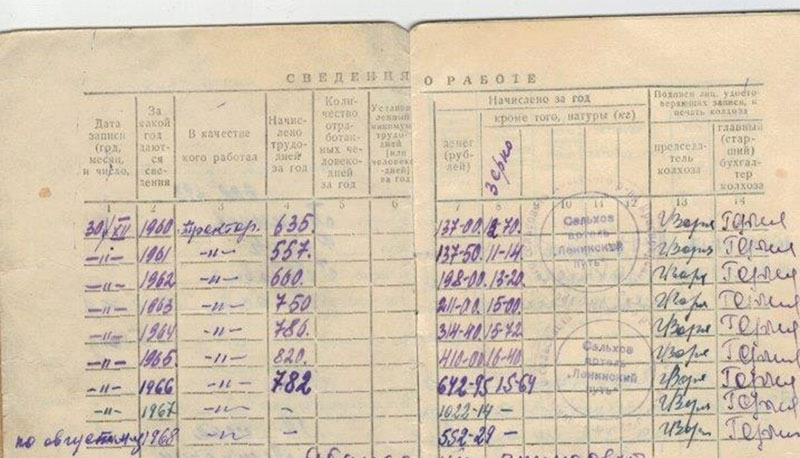 СВЕДЕНИЯ О РАБОТЕ
Дата записи (год, месяц и число,
За какой год даются сведения
В качестве кого работал
Начислено трудодней за год
Количество отработанных человекодней за год
Установленный минимум трудодней (или человекодней) за год
Начислено за год
денег (рублей)
кроме того, натуры (кг)
зерно
Подписи лиц, удостоверяющих записи, и печать колхоза
председатель колхоза
главный (старший) бухгалтер колхоза
1 2 3 4 5 6 7 8 10 11 12 13 14
30/XII 1960 трактор. 635. 137-00
-"- 1961 -"- 557. 137-50 11-14
-"- 1962 -"- 660. 198-00 13-20
-"- 1963 -"- 750 211-00 15-00
-"- 1964 -"- 786. 314-40 15-72
-"- 1965. -"- 820. 410-00 16-40
-"- 1966 -"- 782 642-95 15-64
-"- 1967 -"- - 1022-14 -
по август м-ц 1968 -"- - 552-29 -
Сальхоз
артель
"Ленинский
путь"
Сальхоз
артель
"Ленинский
путь"